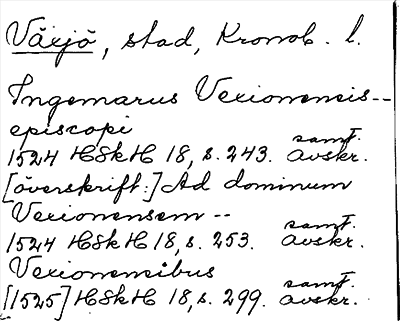 Växjö, stad, Kronob. l.
Ingemarus Vexionensis--
episcopi
1524 HSkH 18, s. 243. samt. avskr.
[överskrift:] Ad dominum
Vexionensem --
1524 HSkH 18, s. 253. samt. avskr.
Vexionensibus
[1525] HSkH 18, s. 299. samt. avskr.